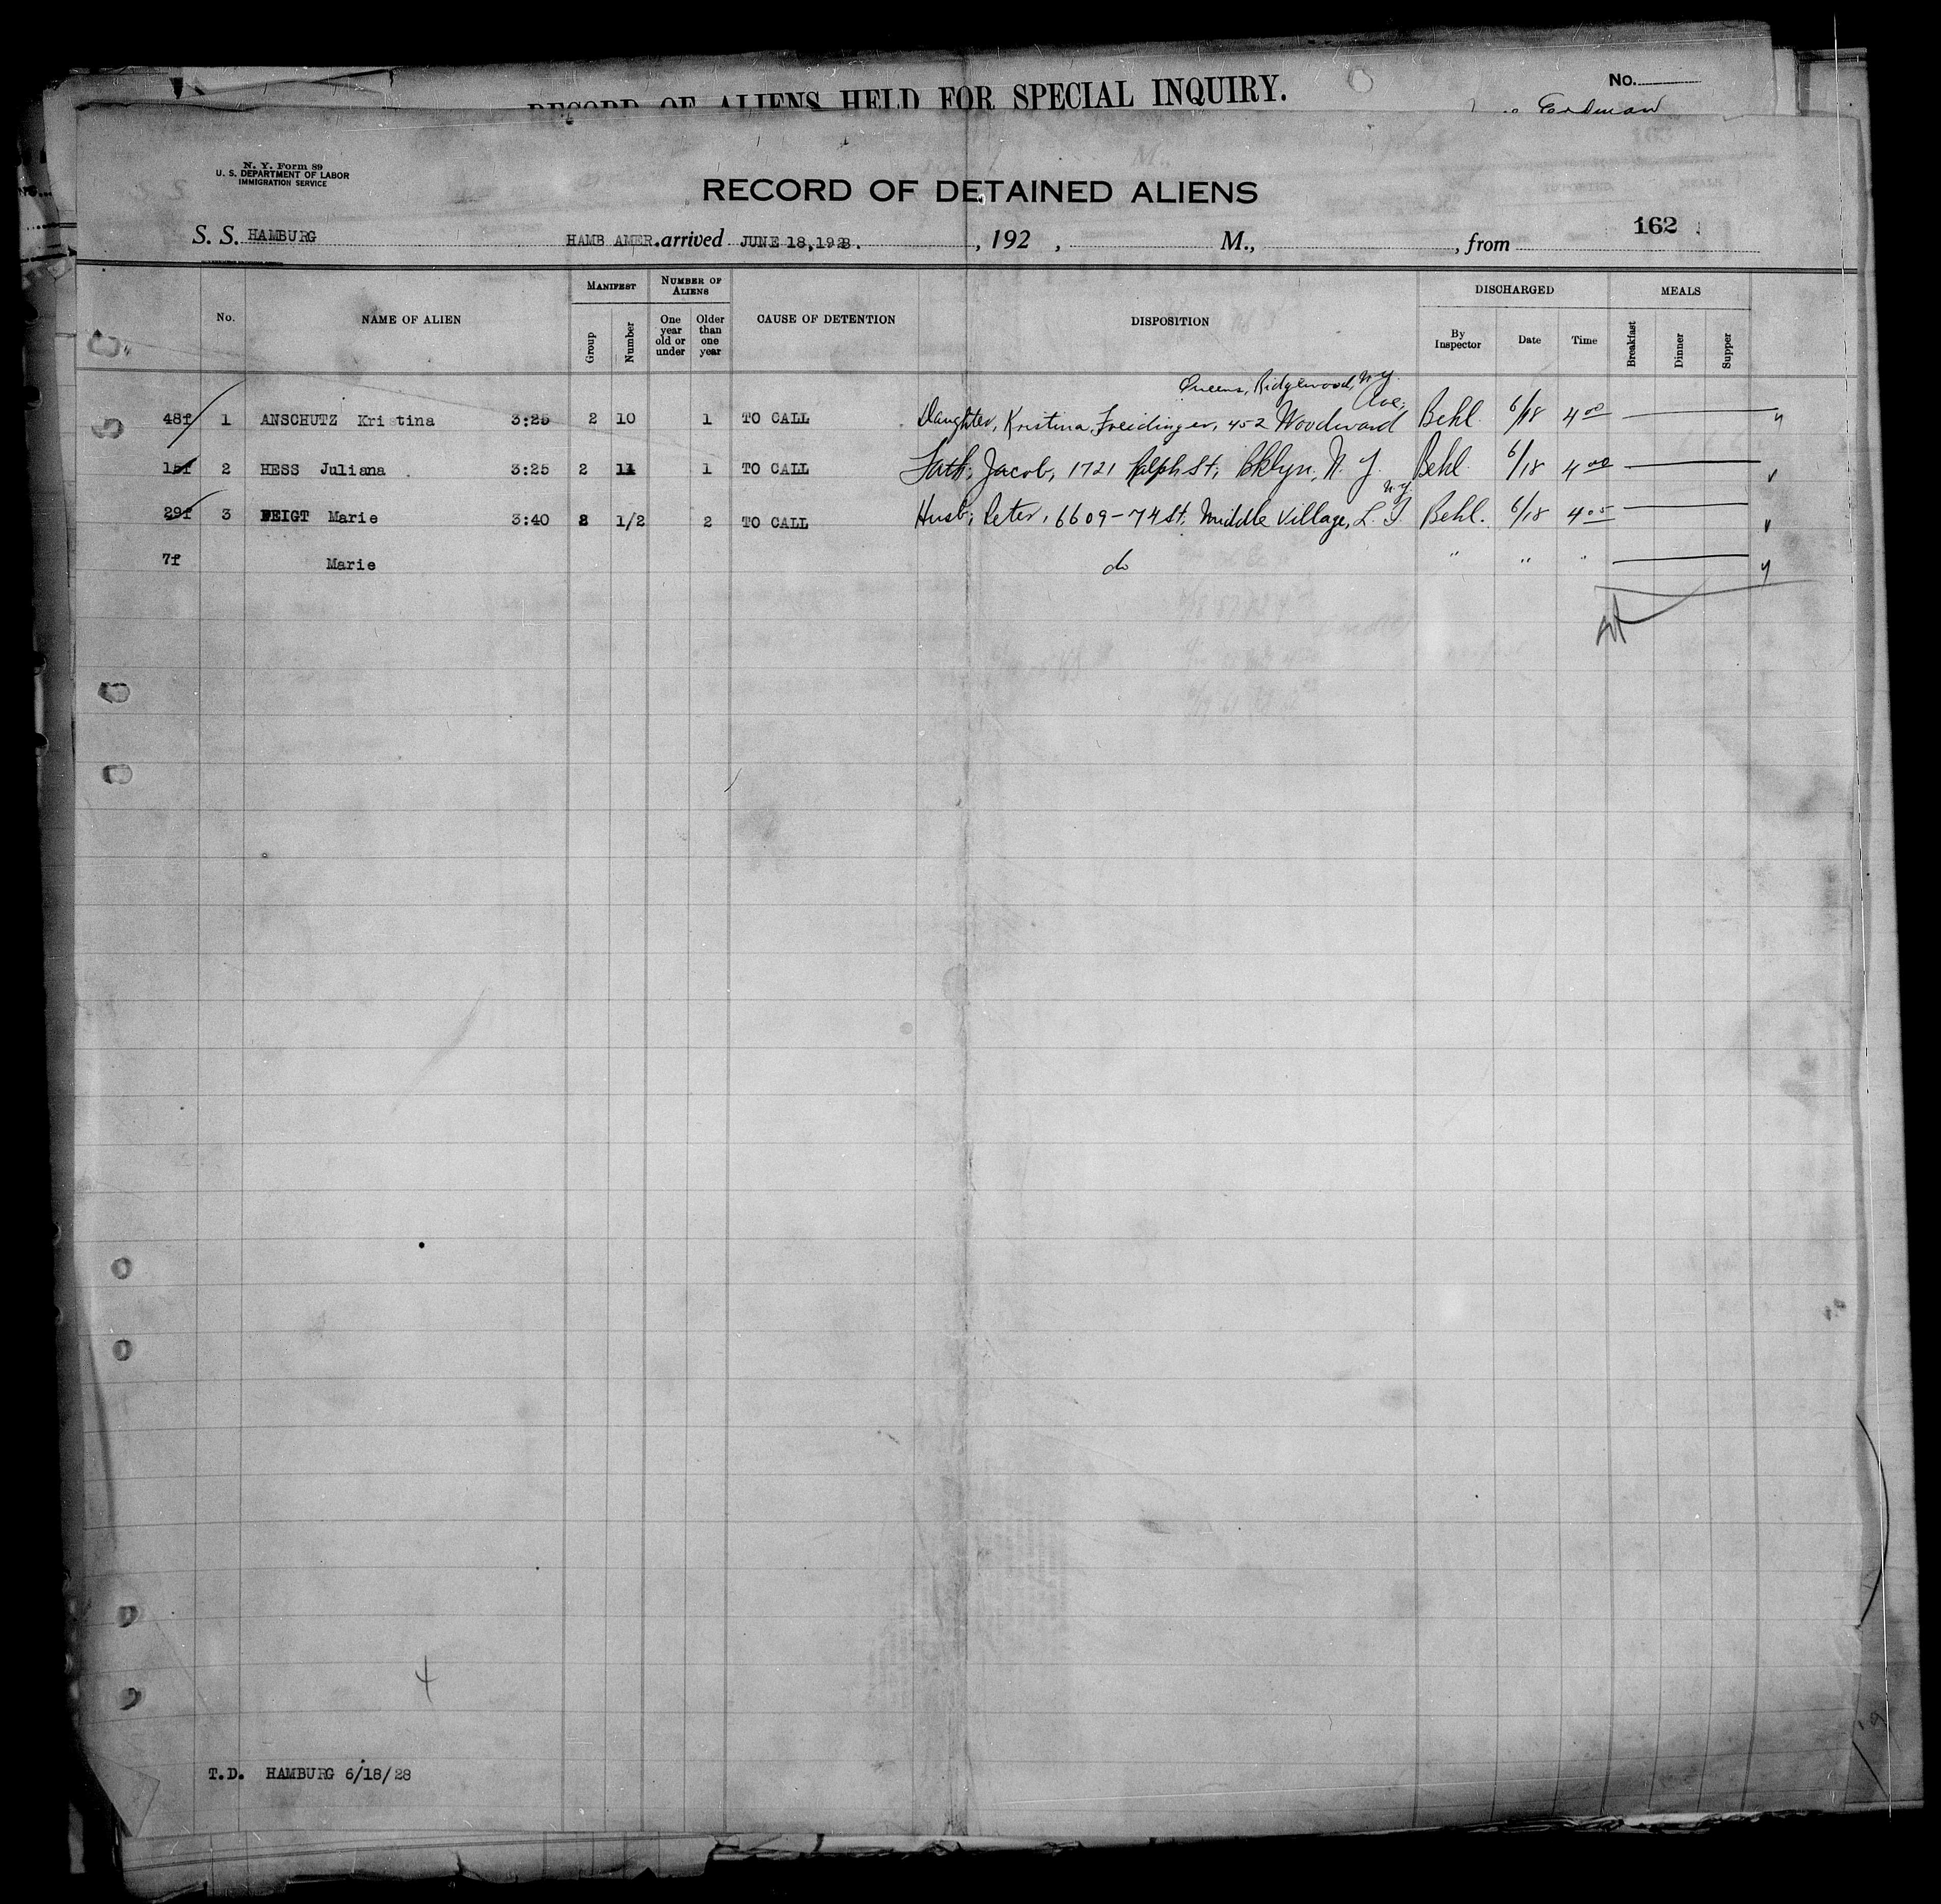 RECORD OF ALIENS HELD FOR SPECIAL INQUIRY.
No.
N. Y. Form 89
U. S. DEPARTMENT OF LABOR
IMMIGRATION SERVICE
RECORD OF DETAINED ALIENS
S. S. HAMBURG HAMB AMER. arrived JUNE 18, 1928. , 192 , M., , from 162
No. NAME OF ALIEN MANIFEST NUMBER OF ALIENS CAUSE OF DETENTION DISPOSITION DISCHARGED MEALS
Group Number One year old or under Older than one year By Inspector Date Time Breakfast Dinner Supper
Queens, Ridgewood, N.Y.
48f 1 ANSCHUTZ Kristina 3:25 2 10 1 TO CALL Daughter, Kristina Freidinger, 452 Woodward Ave; Behl. 6/18 4 00
15f 2 HESS Juliana 3:25 2 11 1 TO CALL Fath; Jacob, 1721 Ralph St; Bklyn, N. Y. Behl. 6/18 4 00
29f 3 FEIGT Marie 3:40 1/2 2 TO CALL Husb; Peter, 6609-74 St; Middle Village, L. I. N.Y. Behl. 6/18 4 05
7f Marie do " " "
4
T.D. HAMBURG 6/18/28